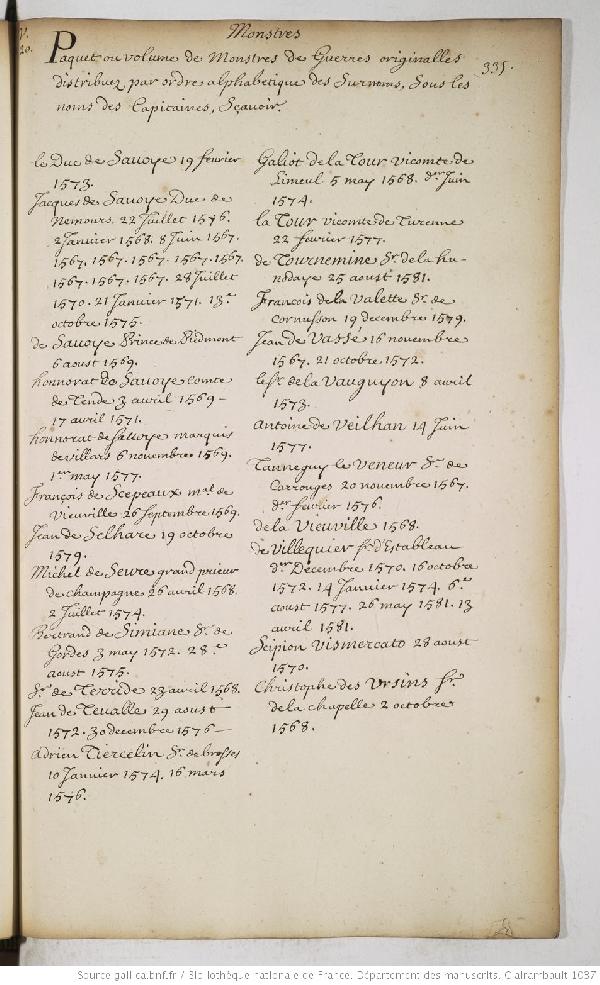 Monstres
V.
20.
Paquet ou volume de Monstres de Guerres originalles
335.
distribuez par ordre alphabetique des Surnoms, Sous les
noms des Capitaines, Sçavoir.
le Duc de Savoye 19 fevrier
1573.
Jacques de Savoye Duc de
Nemours. 22 Juillet 1576.
2 Janvier 1568. 8 Juin 1567.
1567. 1567. 1567. 1567. 1567.
1567. 1567. 1567. 28 Juillet
1570. 21 Janvier 1571. 13.e
octobre 1575.
de Savoye Prince de Piedmont
6 aoust 1569.
honnorat de Savoye comte
de Tende 3 avril 1569 –
17 avril 1571.
honnorat de savoye marquis
de villars 6 novembre 1569.
1.er may 1577.
François de Scepeaux m.al de
Vieuville 26 Septembre 1569.
Jean de Selhare 19 octobre
1579.
Michel de Sevre grand prieur
de champagne 26 avril 1568.
2 Juillet 1574.
Bertrand de Simiane S.r de
Gordes 3 may 1572. 28.e
aoust 1575.
S.r de Terride 23 avril 1568.
Jean de Tevalle 29 aoust
1572. 30 decembre 1576 –
Adrien Tiercelin S.r de brosses
10 Janvier 1574. 16 mars
1576.
Galiot de la Tour vicomte de
Limeul 5 may 1568. d.er Juin
1574.
la Tour vicomte de Turenne
22 fevrier 1577.
de Tournemine S.r de la hu-
nodaye 25 aoust 1581.
François de la Valette S.r de
Cornusson 19 decembre 1579.
Jean de Vassé 16 novembre
1567. 21 octobre 1572.
le S.r de la Vauguyon 8 avril
1573.
Antoine de Veilhan 14 Juin
1577.
Tanneguy le Veneur S.r de
Carrouges 20 novembre 1567.
d.er fevrier 1576.
de la Vieuville 1568.
de Villequier S.r d'Estableau
d.er Decembre 1570. 16 octobre
1572. 14 Janvier 1574. 6.e
aoust 1577. 26 may 1581. 13
avril 1581.
Scipion Vismercato 28 aoust
1570.
Christophe des Ursins S.r
de la chapelle 2 octobre
1568.
Source gallica.bnf.fr / Bibliothèque nationale de France. Département des manuscrits. Clairambault 1037